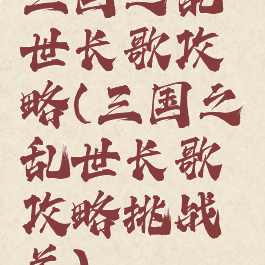 三国之乱
世长歌攻
略(三国之
乱世长歌
攻略挑战